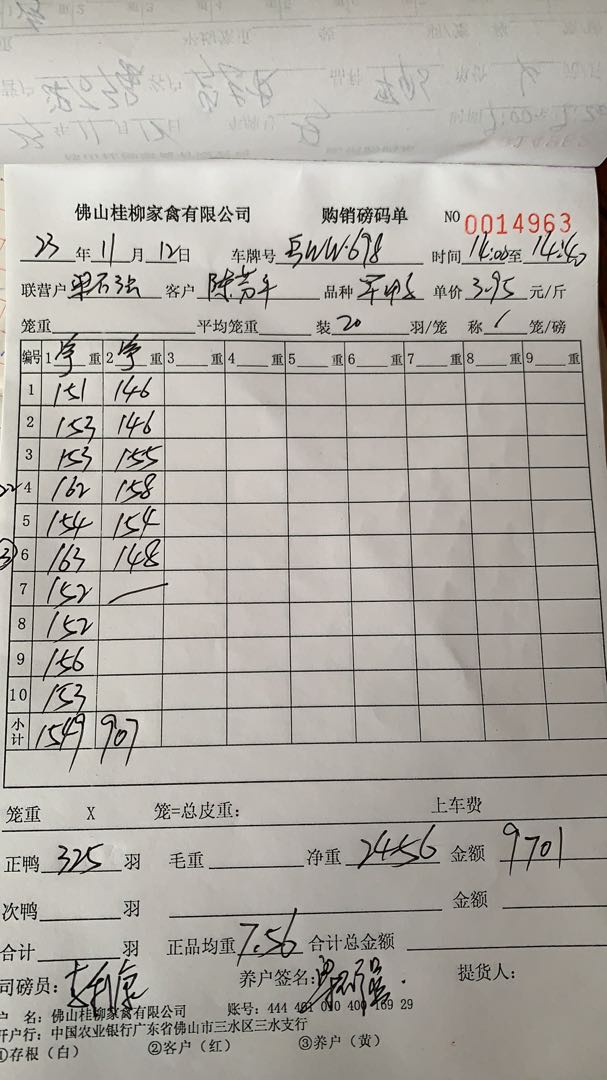 佛山桂柳家禽有限公司 购销磅码单 NO 0014963
23 年 11 月 12 日 车牌号 WW·698 时间 14:00 至 14:40
联营户 客户 陈芳平 品种 单价 3.95 元/斤
笼重 平均笼重 装 20 羽/笼 称 1 笼/磅
编号 1 净 重 2 净 重 3 重 4 重 5 重 6 重 7 重 8 重 9 重
1 151 146
2 153 146
3 153 155
22 4 162 158
5 154 154
③ 6 163 148
7 152 —
8 152
9 156
10 153
小计 1549 907
笼重 X 笼=总皮重: 上车费
正鸭 325 羽 毛重 净重 2456 金额 9701
次鸭 羽 金额
合计 羽 正品均重 7.56 合计总金额
司磅员: 养户签名: 提货人:
户 名: 佛山桂柳家禽有限公司 账号: 444 401 040 400 169 29
开户行: 中国农业银行广东省佛山市三水区三水支行
①存根(白) ②客户(红) ③养户(黄)